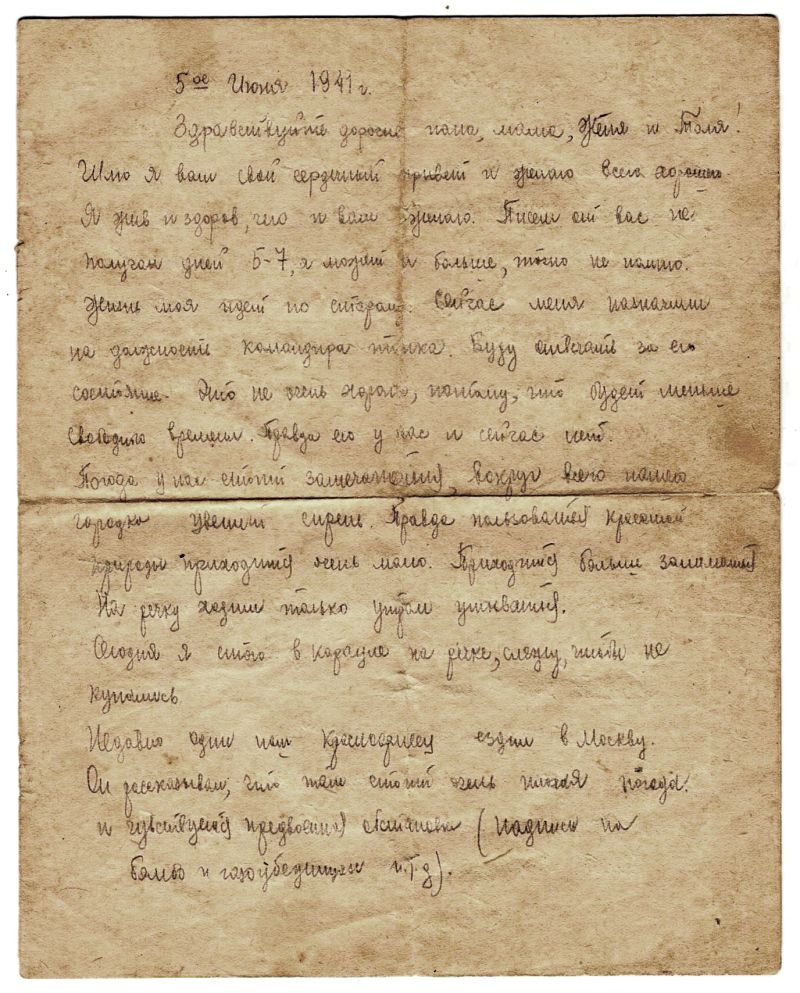 5ое Июня 1941 г.
Здравствуйте дорогие папа, мама, Женя и Толя!
Шлю я вам свой сердечный привет и желаю всего хорошего.
Я жив и здоров, чего и вам желаю. Писем от вас не
получал дней 5-7, а может и больше, точно не помню.
Жизнь моя идет по старому. Сейчас меня назначили
на должность командира танка. Буду отвечать за его
состояние. Это не очень хорошо, потому, что будет меньше
свободного времени. Правда его у нас и сейчас нет.
Погода у нас стоит замечательная, вокруг всего нашего
городка цветет сирень. Правда пользоваться красотой
природы приходится очень мало. Приходится больше заниматься
На речку ходим только утром умываться.
Сегодня я стою в карауле на речке, слежу, чтобы не
купались.
Недавно один наш красноармеец ездил в Москву.
Он рассказывал, что там стоит очень плохая погода.
и чувствуется предвоенная обстановка (надписи на
бомбо и газоубежищах и.т.д).